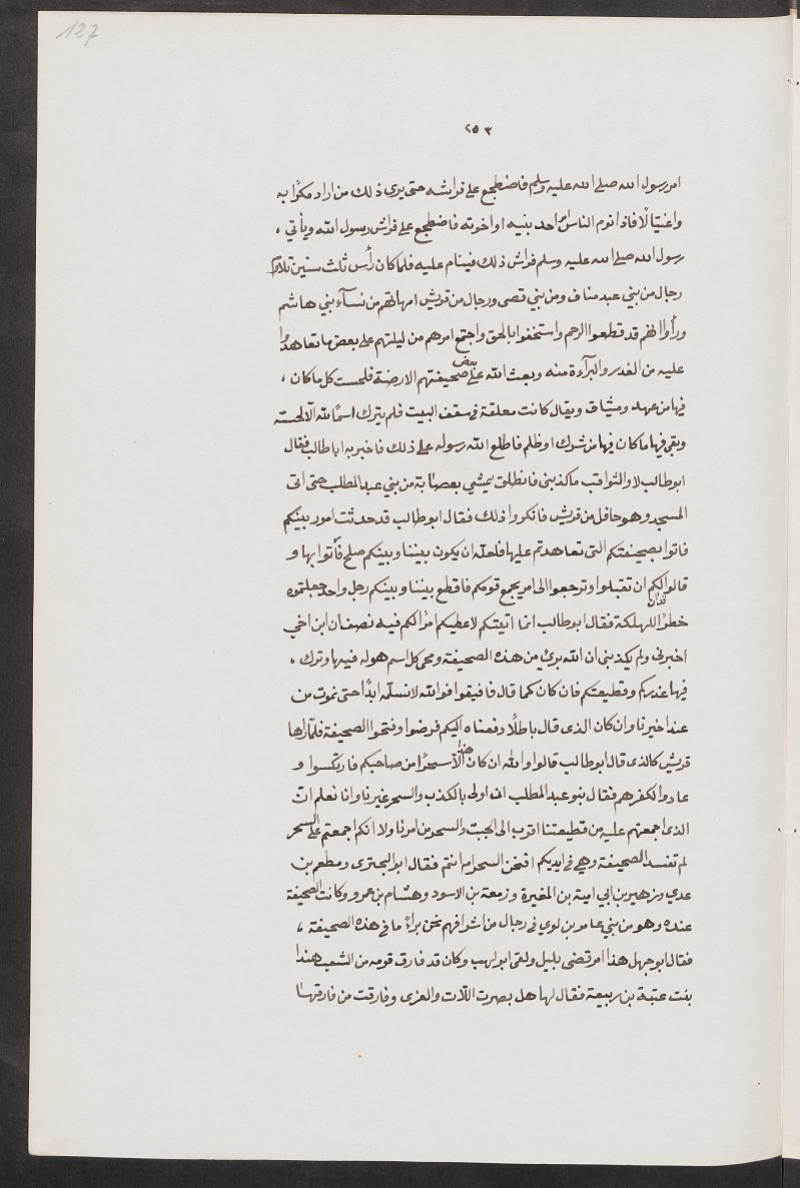 127
٢٥٣
امر رسول الله صلى الله عليه وسلم فاضطجع على فراشه حتى يرى ذلك من اراد مكرًا به
واغتيالًا فاذا نوم الناس امر احد بنيه او اخوته فاضطجع على فراش رسول الله ويأتي ،
رسول الله صلى الله عليه وسلم فراش ذلك فينام عليه فلما كان رأس ثلث سنين تلاوم
رجال من بني عبد مناف ومن بني قصى ورجال من قريش امهاتهم من نسآء بني هاشم
ورأوا انهم قد قطعوا الرحم واستخفوا بالحق واجتمع امرهم من ليلتهم على بعض ما تعاهدوا
عليه من الغدر والبرآءة منه وبعث الله على بعض صحيفتهم الارضة فلحست كل ما كان ،
فيها من عهد وميثاق ويقال كانت معلقة في سقف البيت فلم يترك اسمًا لله الا لحسته
وبقى فيها ما كان فيها من شرك او ظلم فاطلع الله رسوله على ذلك فاخبر به ابا طالب فقال
ابو طالب لا والثواقب ما كذبنى فانطلق يمشي بعصابة من بني عبد المطلب حتى اتى
المسجد وهو حافل من قريش فانكروا ذلك فقال ابو طالب قد حدثت امور بينكم
فاتوا بصحيفتكم التى تعاهدتم عليها فلعله ان يكون بيننا وبينكم صلح فأتوا بها و
قالوا لكم ان تقبلوا وترجعوا الى امر يجمع قومكم فاقطع بيننا وبينكم رجل واحد جعلتموه
خطرًا للهلكة فقال ابو طالب انما اتيتكم لاعطيكم امرًا لكم فيه نصف ان ابن اخي
اخبرنى ولم يكذبنى ان الله برئ من هذه الصحيفة ومحى كل اسم هو له فيها وترك ،
فيها غدركم وقطيعتكم فان كان كما قال فافيقوا فوالله لا نسلمه ابدًا حتى نموت من
عند اخيرنا وان كان الذى قال باطلًا دفعناه اليكم فرضوا وفتحوا الصحيفة فلما رأها
قريش كالذى قال ابو طالب قالوا والله ان كان هذا الا سحرًا من صاحبكم فارتكسوا و
عادوا لكفرهم فقال بنو عبد المطلب ان اولى بالكذب والسحر غيرنا وانا نعلم ان
الذى اجمعتم عليه من قطيعتنا اقرب الى الجبت والسحر من امرنا ولا انكم اجمعتم على السحر
لم تفسد الصحيفة وهي في ايديكم افنحن السحرة ام انتم فقال ابو البحترى ومطعم بن
عدي وزهير بن ابي امية بن المغيرة وزمعة بن الاسود وهشام بن عمرو وكانت الصحيفة
عنده وهو من بني عامر بن لوي في رجال من اشرافهم نحن برآء ما في هذه الصحيفة ،
فقال ابو جهل هذا امر قضى بليل ولقى ابو لهب وكان قد فارق قومه من الشعب هندا
بنت عتبة بن ربيعة فقال لها هل بصرت اللات والعزى وفارقت من فارقها